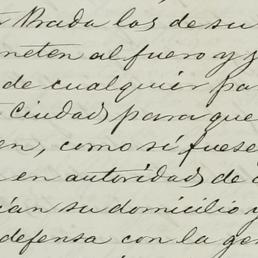 Prada los de su
meten al fuero y j
de cualquier pa
Ciudad para que
en, como si fuese
en autoridad de c
cian su domicilio y
defensa con la gen